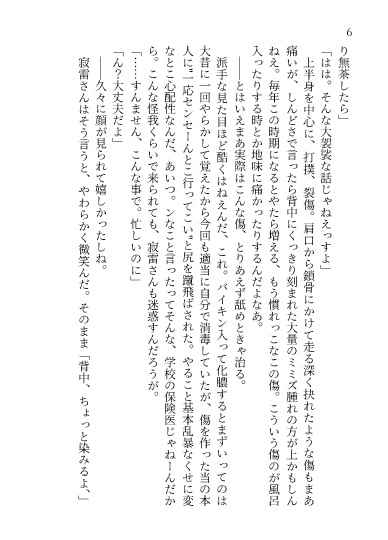 6
り無茶したら」
「はは。そんな大袈裟な話じゃねえっすよ」
上半身を中心に、打撲、裂傷。肩口から鎖骨にかけて走る深く抉れたような傷もまあ
痛いが、しんどさで言ったら背中にくっきり刻まれた大量のミミズ腫れの方が上かもしん
ねえ。毎年この時期になるとやたら増える、もう慣れっこなこの傷。こういう傷のが風呂
入ったりする時とか地味に痛かったりするんだよなあ。
――とはいえまあ実際はこんな傷、とりあえず舐めときゃ治る。
派手な見た目ほど酷くはねえんだ、これ。バイキン入って化膿するとまずいってのは
大昔に一回やらかして覚えたから今回も適当に自分で消毒していたが、傷を作った当の本
人に〝一応センセーんとこ行ってこい〟と尻を蹴飛ばされた。やること基本乱暴なくせに変
なとこ心配性なんだ、あいつ。ンなこと言ったってそんな、学校の保険医じゃねーんだか
ら。こんな怪我くらいで来られても、寂雷さんも迷惑すんだろうが。
「……すんません、こんな事で。忙しいのに」
「ん？大丈夫だよ」
――久々に顔見られて嬉しかったしね。
寂雷さんはそう言うと、やわらかく微笑んだ。そのまま「背中、ちょっと染みるよ、」